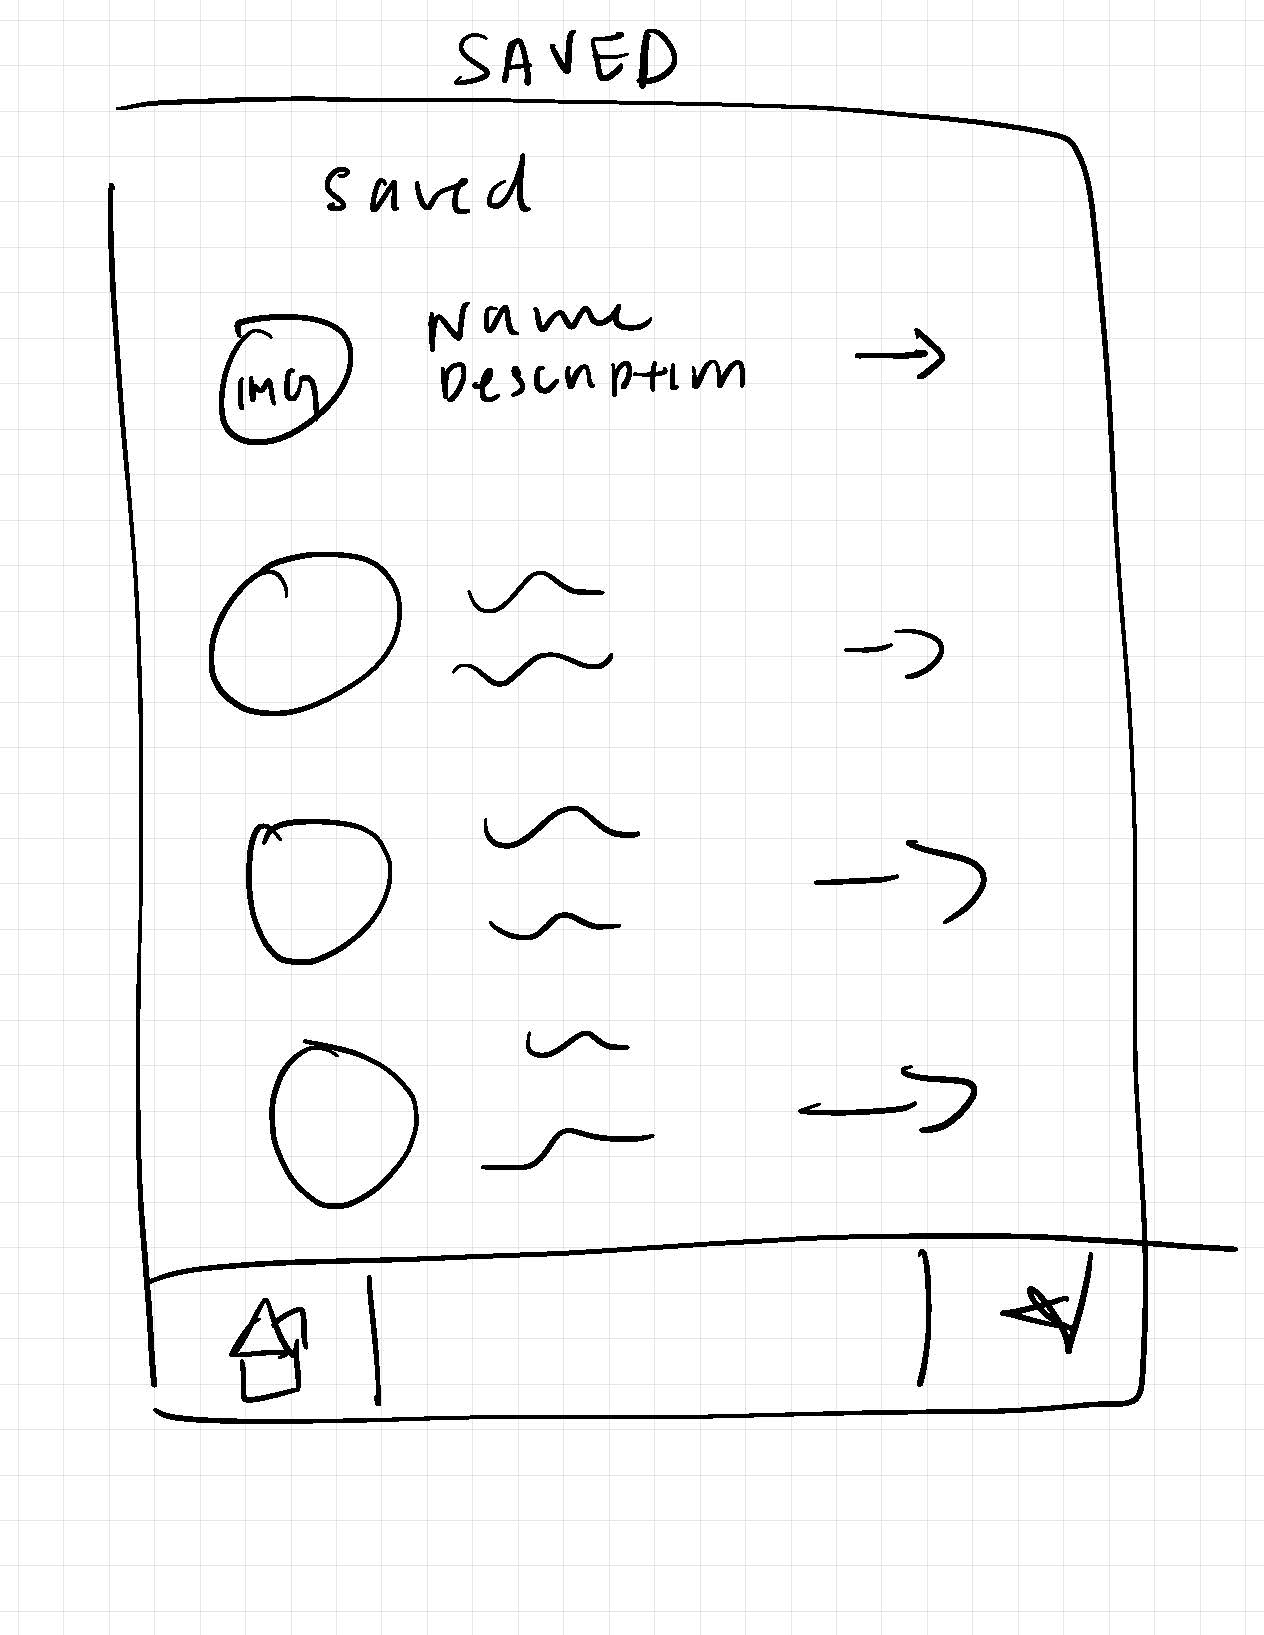 SAVED
saved
IMG
Name
Description